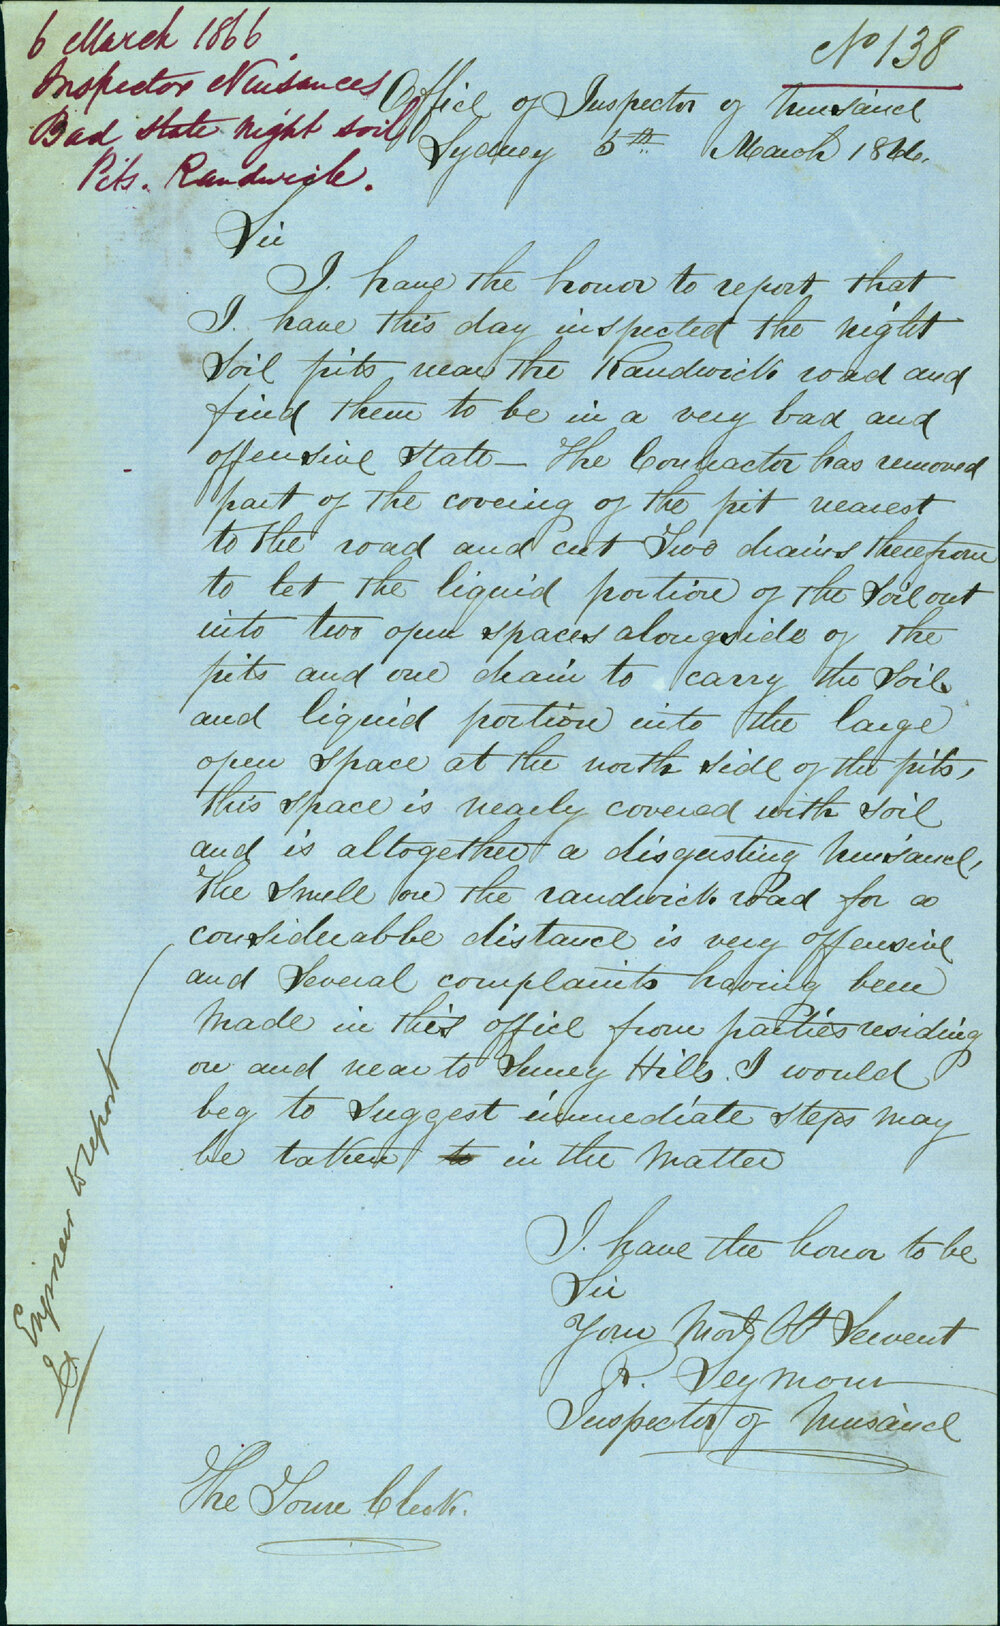 6 March 1866
Inspector Nuisances
Bad state night soil
Pits. Randwick.
No 138
Office of Inspector of Nusance
Sydney 5th March 1866.
Sir
I. have the honor to report that
I. have this day inspected the night
Soil pits near the Randwick road and
find them to be in a very bad and
offensive state — The Contractor has removed
part of the covering of the pit nearest
to the road and cut Two drains therefrom
to let the liquid portion of the Soil out
into two open spaces alongside of the
pits and one drain to carry the Soil
and liquid portion into the large
open space at the north side of the pits,
this space is nearly covered with soil
and is altogether a disgusting Nusance,
The Smell on the randwick road for a
considerabbe distance is very offensive
and Several complaints having been
Made in this office from parties residing
on and near to Surrey Hills. I would
beg to suggest immediate steps may
be taken to in the Matter
I. have the honor to be
Sir
Your Most Obt Servent
R. Seymour
Inspector of Nusance
The Town Clerk.
Engineer to report